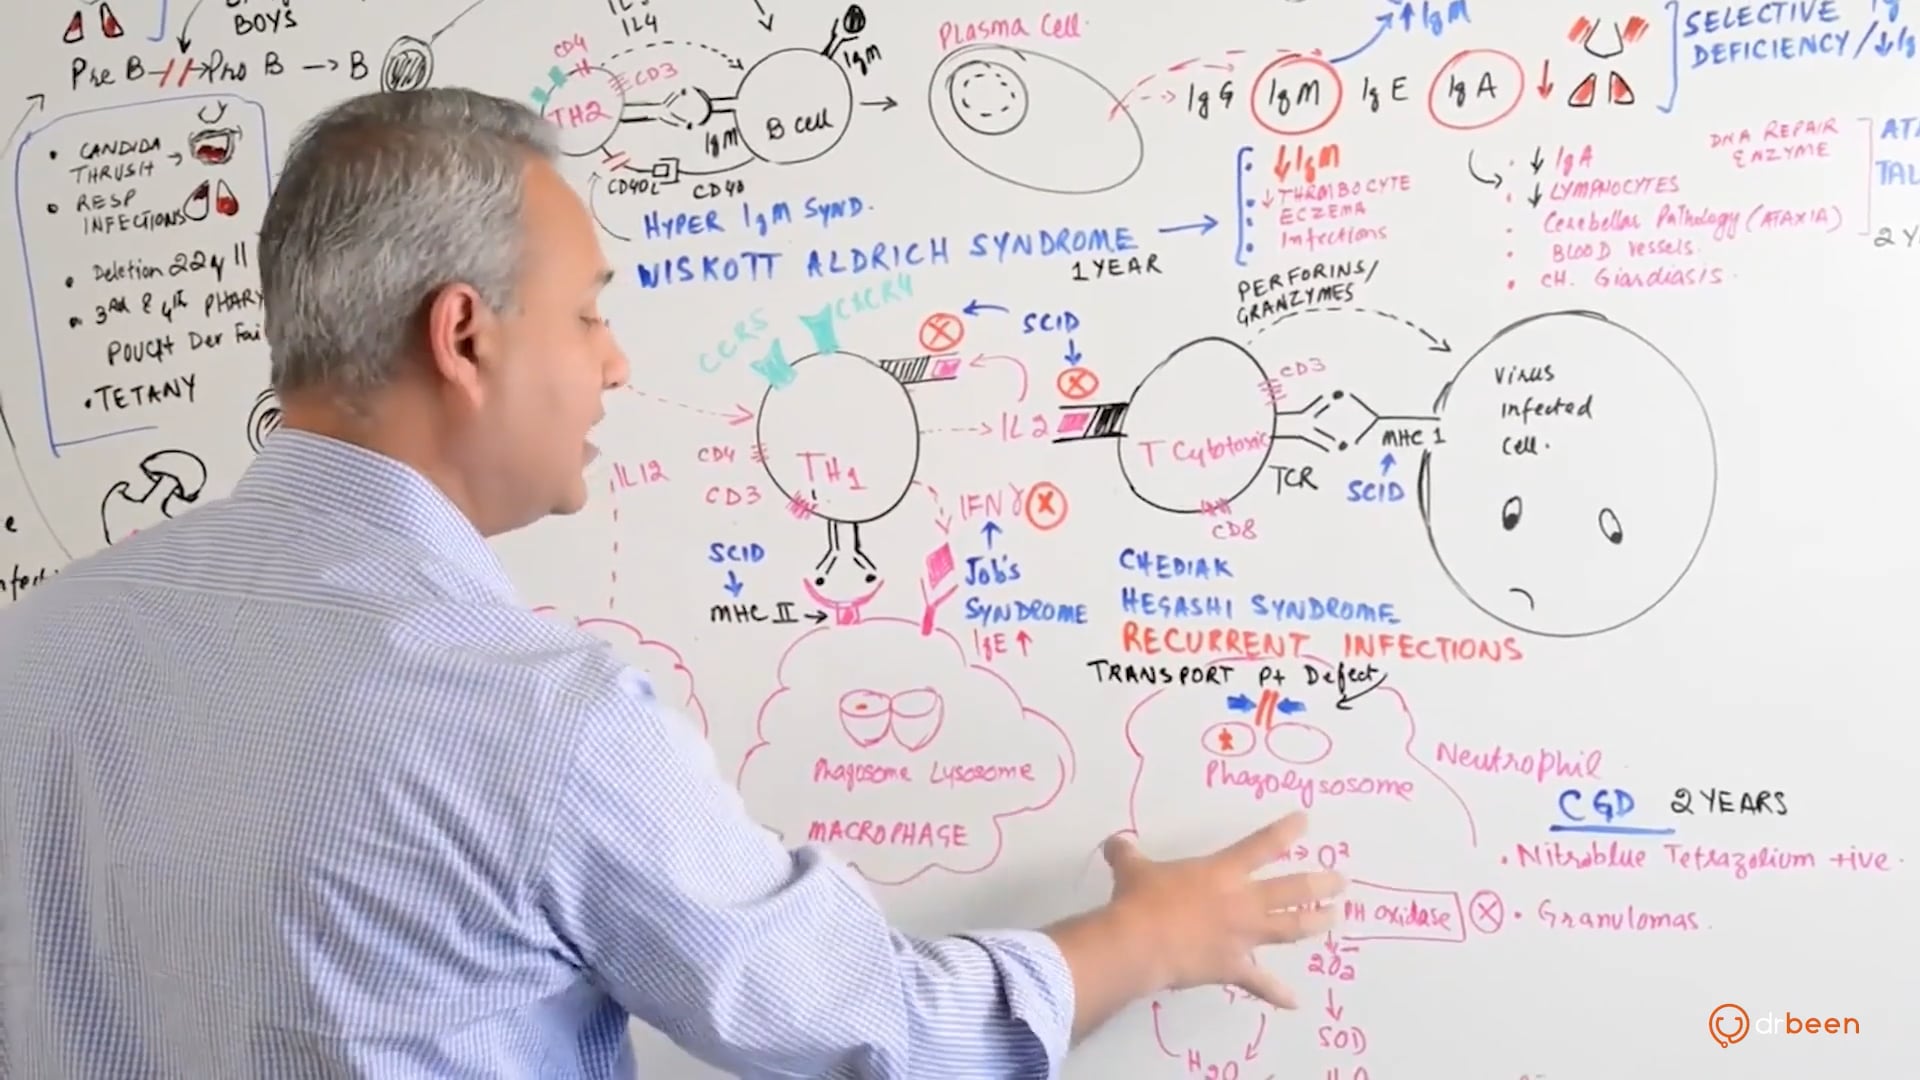 BOYS
Pre B
Pro B
B
IL4
CD4
CD3
TH2
IgM
B cell
IgM
CD40L
CD40
Plasma Cell
IgG
IgM
IgE
IgA
↑IgM
SELECTIVE
DEFICIENCY/↓Ig
• CANDIDA
THRUSH
• RESP
INFECTIONS
• Deletion 22q11
• 3Rd & 4th PHARY
POUCH Der Fai
• TETANY
HYPER IgM SYND.
WISKOTT ALDRICH SYNDROME
1 YEAR
• ↓IgM
• ↓THROMBOCYTE
• ECZEMA
• Infections
DNA REPAIR
ENZYME
• ↓ IgA
• ↓ LYMPHOCYTES
• Cerebellar Pathology (ATAXIA)
• BLOOD vessels.
• CH. Giardiasis.
ATA
TAL
2 Y
PERFORINS/
GRANZYMES
CCR5
CXCR4
SCID
CD3
Virus
infected
cell.
IL2
CD4
TH1
T Cytotoxic
MHC 1
IL12
CD3
IFN γ
TCR
SCID
CD8
SCID
MHC II
Job's
SYNDROME
IgE ↑
CHEDIAK
HEGASHI SYNDROME
RECURRENT INFECTIONS
TRANSPORT Pt Defect
Phagosome Lysosome
MACROPHAGE
Phagolysosome
Neutrophil
CGD 2 YEARS
• Nitroblue Tetrazolium +ive.
O2
PH oxidase
• Granulomas.
2O2
SOD
H2O
drbeen